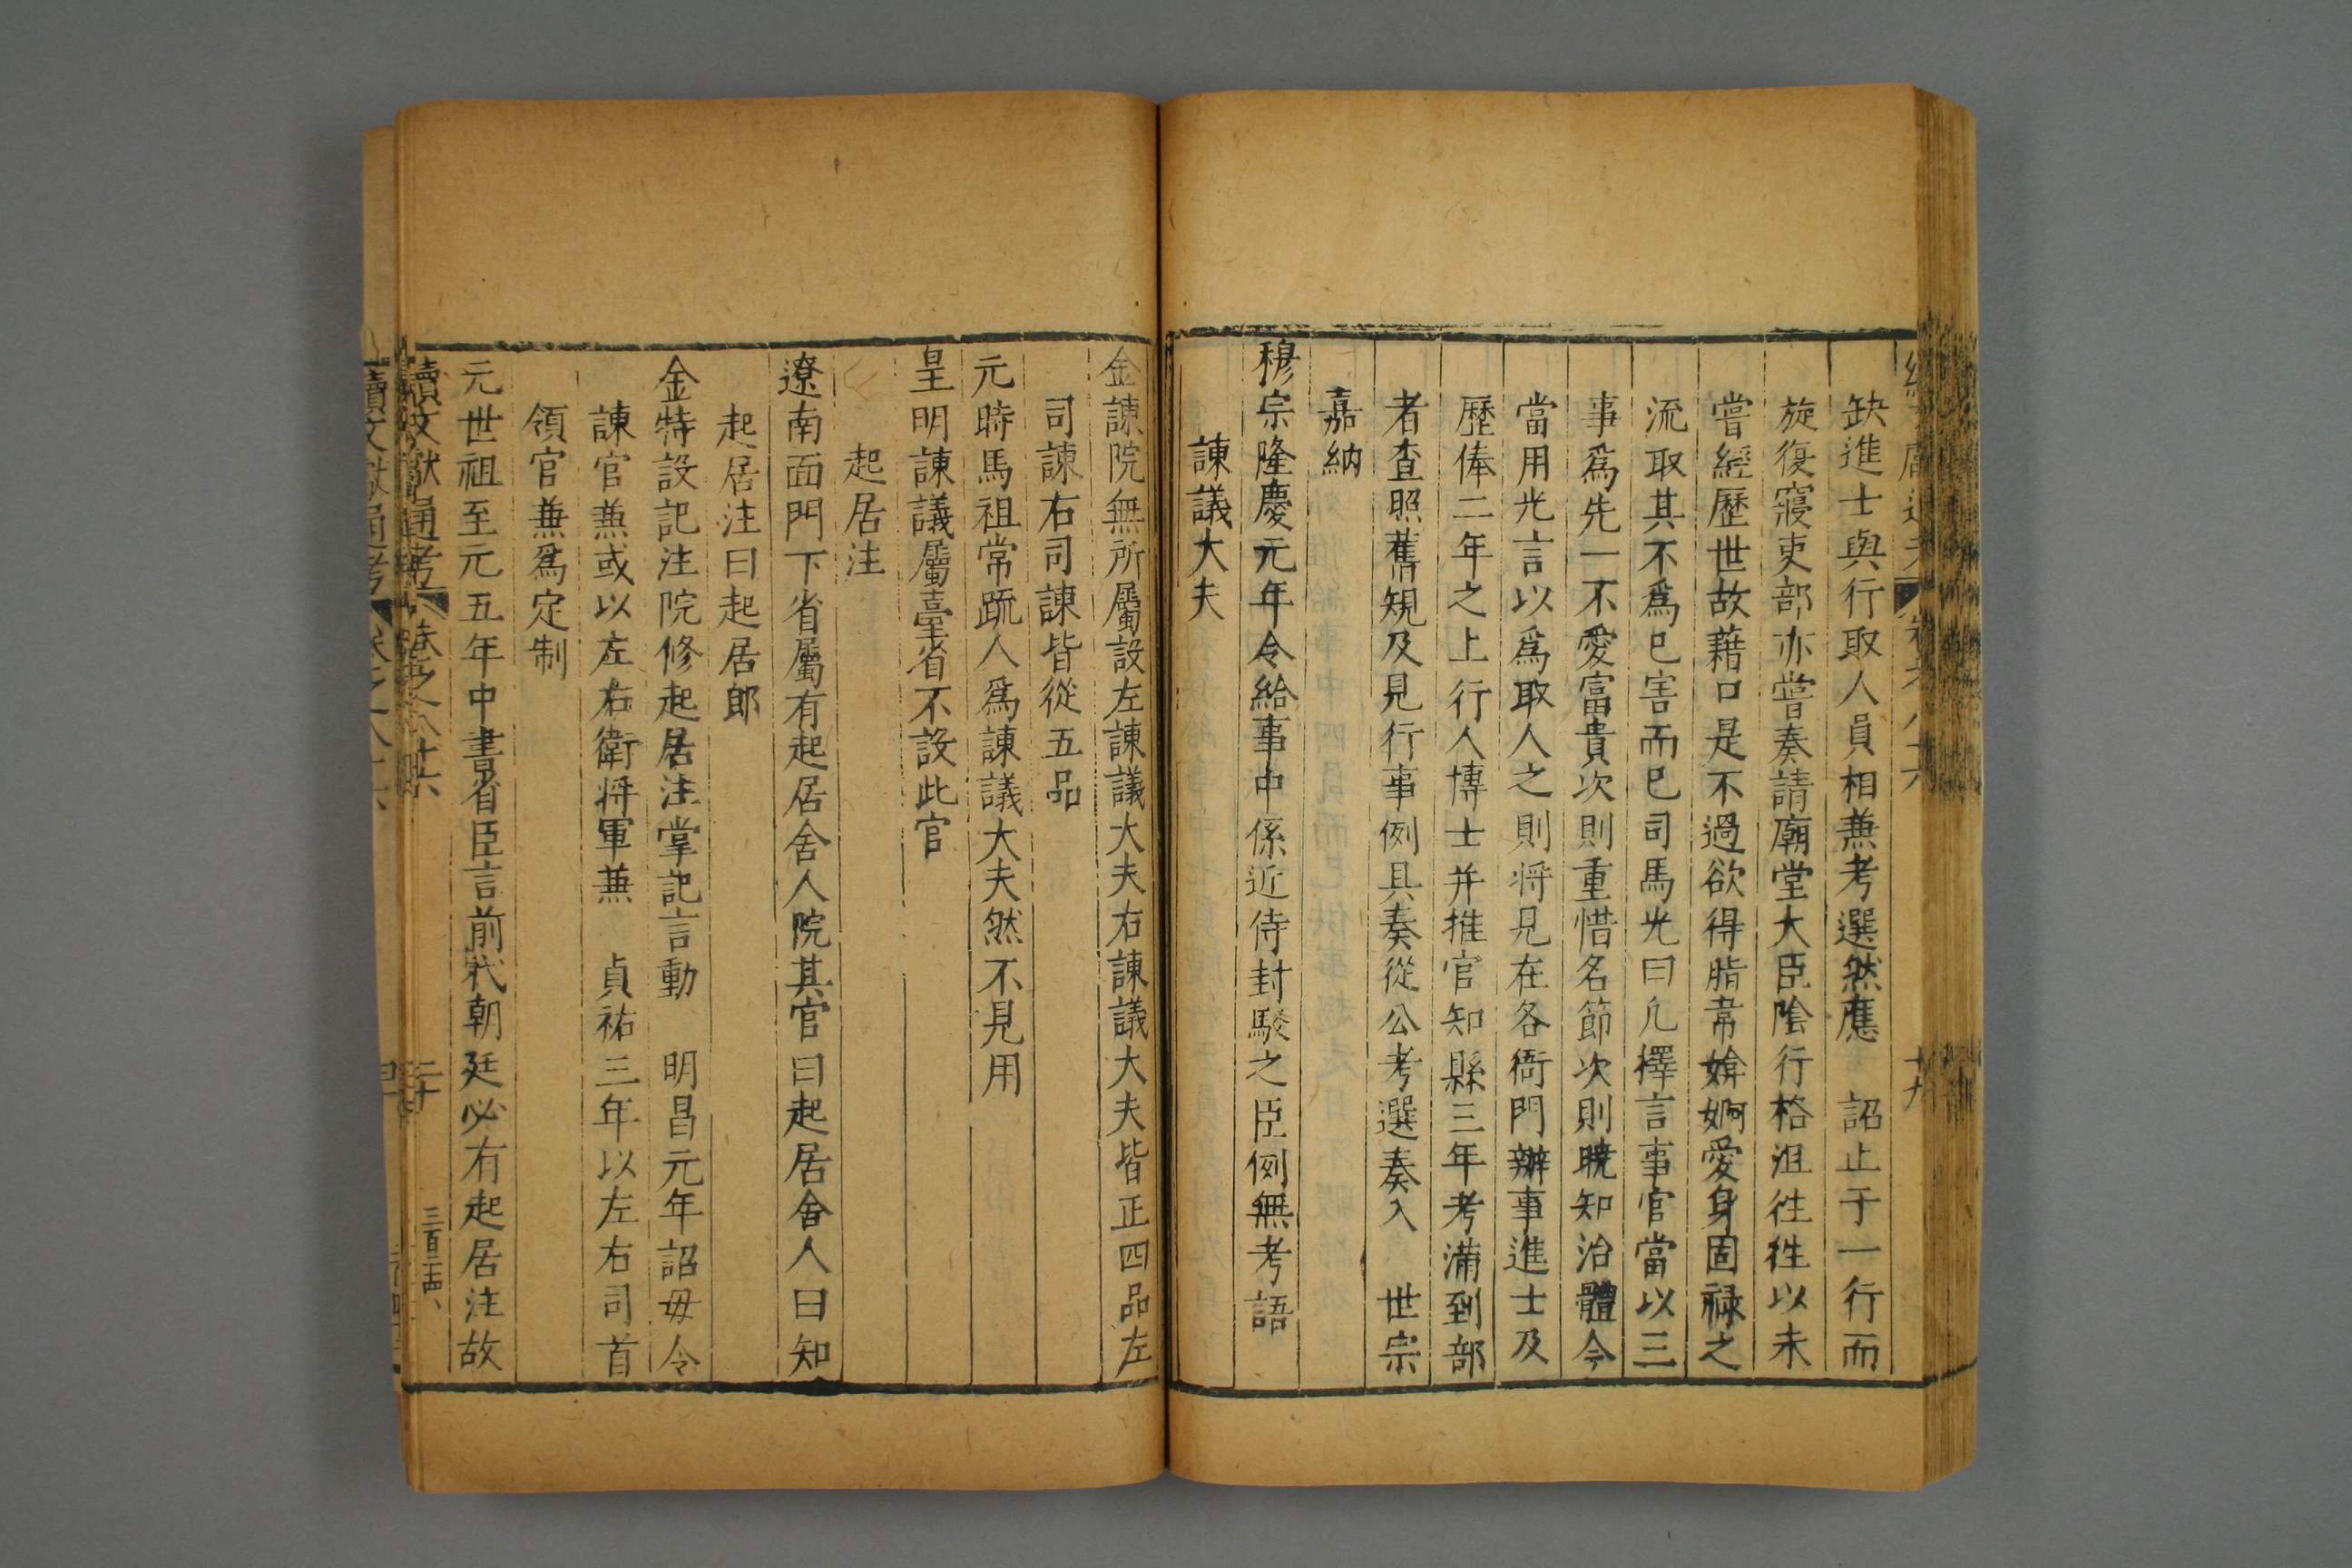 缺進士與行取人員相兼考選然應　詔止于一行而
旋復寢吏部亦嘗奏請廟堂大臣陰行格沮徃徃以未
嘗經歷世故藉口是不過欲得脂韋媕婀愛身固禄之
流取其不爲已害而已司馬光曰凢擇言事官當以三
事爲先一不愛富貴次則重惜名節次則曉知治體今
當用光言以爲取人之則将見在各衙門辦事進士及
歷俸二年之上行人博士并推官知縣三年考滿到部
者查照舊規及見行事例具奏從公考選奏入　世宗
嘉納
穆宗隆慶元年令給事中係近侍封駁之臣例無考語
諫議大夫
金諫院無所屬設左諫議大夫右諫議大夫皆正四品左
司諫右司諫皆從五品
元時馬祖常䟽人爲諫議大夫然不見用
皇明諫議屬臺省不設此官
起居注
遼南面門下省屬有起居舍人院其官曰起居舍人曰知
起居注曰起居郎
金特設記注院修起居注掌記言動　明昌元年詔毋令
諫官兼或以左右衛将軍兼　貞祐三年以左右司首
領官兼爲定制
元世祖至元五年中書省臣言前代朝廷必有起居注故
續文獻通考
卷之八十六
二十